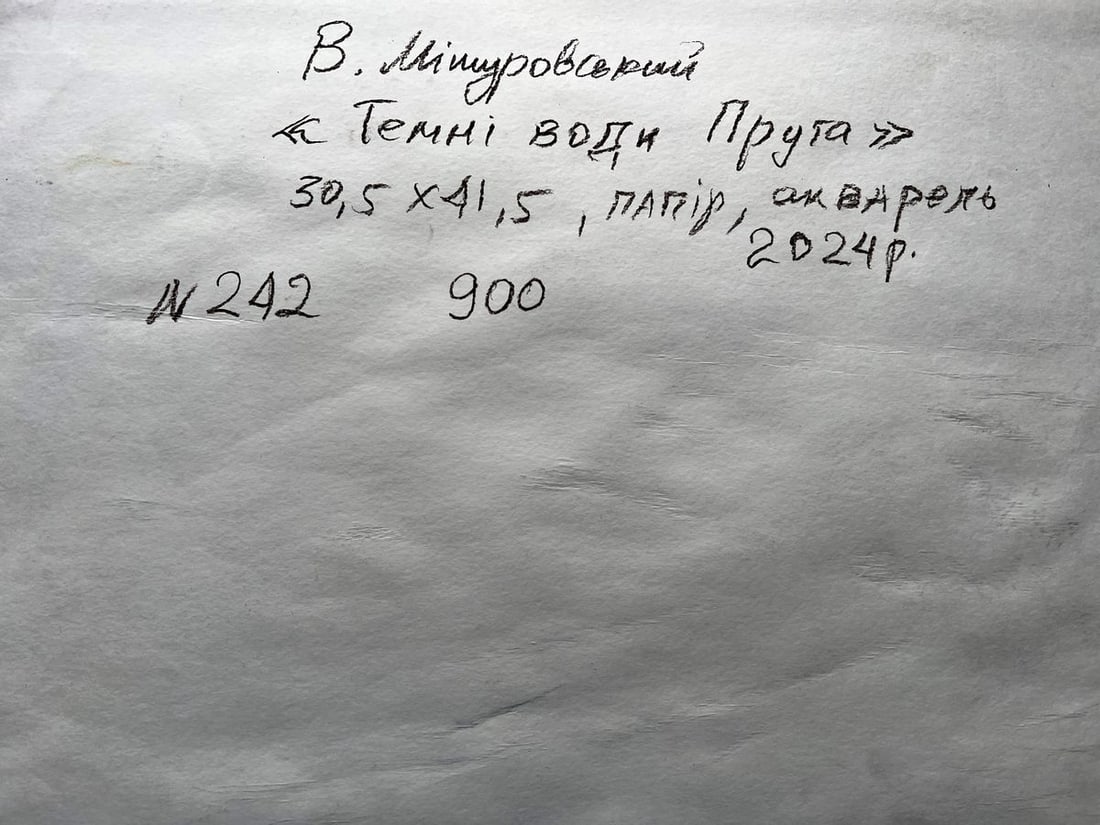 В. Мітуровський
« Темні води Прута »
30,5 х 41,5 , папір, акварель
2024р.
N 242 900